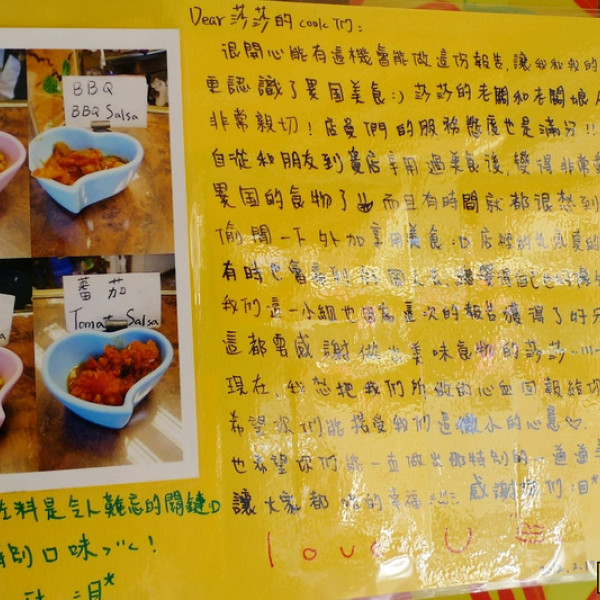 Dear 莎莎的 cook 們：
很開心能有這機會能做這份報告，讓我和我的
更認識了異國美食:) 莎莎的老闆和老闆娘人
非常親切！店員們的服務態度也是滿分!!
自從和朋友到貴店享用過美食後，變得非常愛
異國的食物了 而且有時間就都很想到
偷閒一下外加享用美食:D 店裡的氣氛真的
有時也會看到外國人士，
我們這一小組也因為這次的報告獲得了好分
這都要感謝做出美味食物的莎莎
現在，我想把我們所做的心血回報給你
希望你們能接受我們這微小的心意♡.
也希望你們能一直做出那特別的一道道美
讓大家都吃的幸福 感謝你們:目*
love U
BBQ
BBQ Salsa
蕃茄
Tomat Salsa
佐料是令人難忘的關鍵:D
特別口味